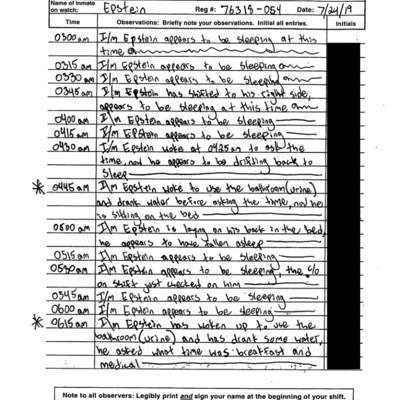 Name of Inmate
on watch: Epstein Reg #: 76318-054 Date: 7/24/19
Time Observations: Briefly note your observations. Initial all entries. Initials
0300am I/m Epstein appears to be sleeping at this
time
0315am I/m Epstein appears to be sleeping
0330am I/m Epstein appears to be sleeping
0345am I/m Epstein has shifted to his right side,
appears to be sleeping at this time
0400am I/m Epstein appears to be sleeping
0415am I/m Epstein appears to be sleeping
0430am I/m Epstein woke at 0425am to ask the
time, now he appears to be drifting back to
sleep
* 0445am I/m Epstein woke to use the bathroom (urine)
and drank water before asking the time, now he
is sitting on the bed
0500am I/m Epstein is laying on his back in the bed,
he appears to have fallen asleep
0515am I/m Epstein appears to be sleeping
0530am I/m Epstein appears to be sleeping, the c/o
on shift just checked on him
0545am I/m Epstein appears to be sleeping
0600am I/m Epstein appears to be sleeping
* 0615am I/m Epstein has woken up to use the
bathroom (urine) and has drank some water,
he asked what time was breakfast and
medical
Note to all observers: Legibly print and sign your name at the beginning of your shift.